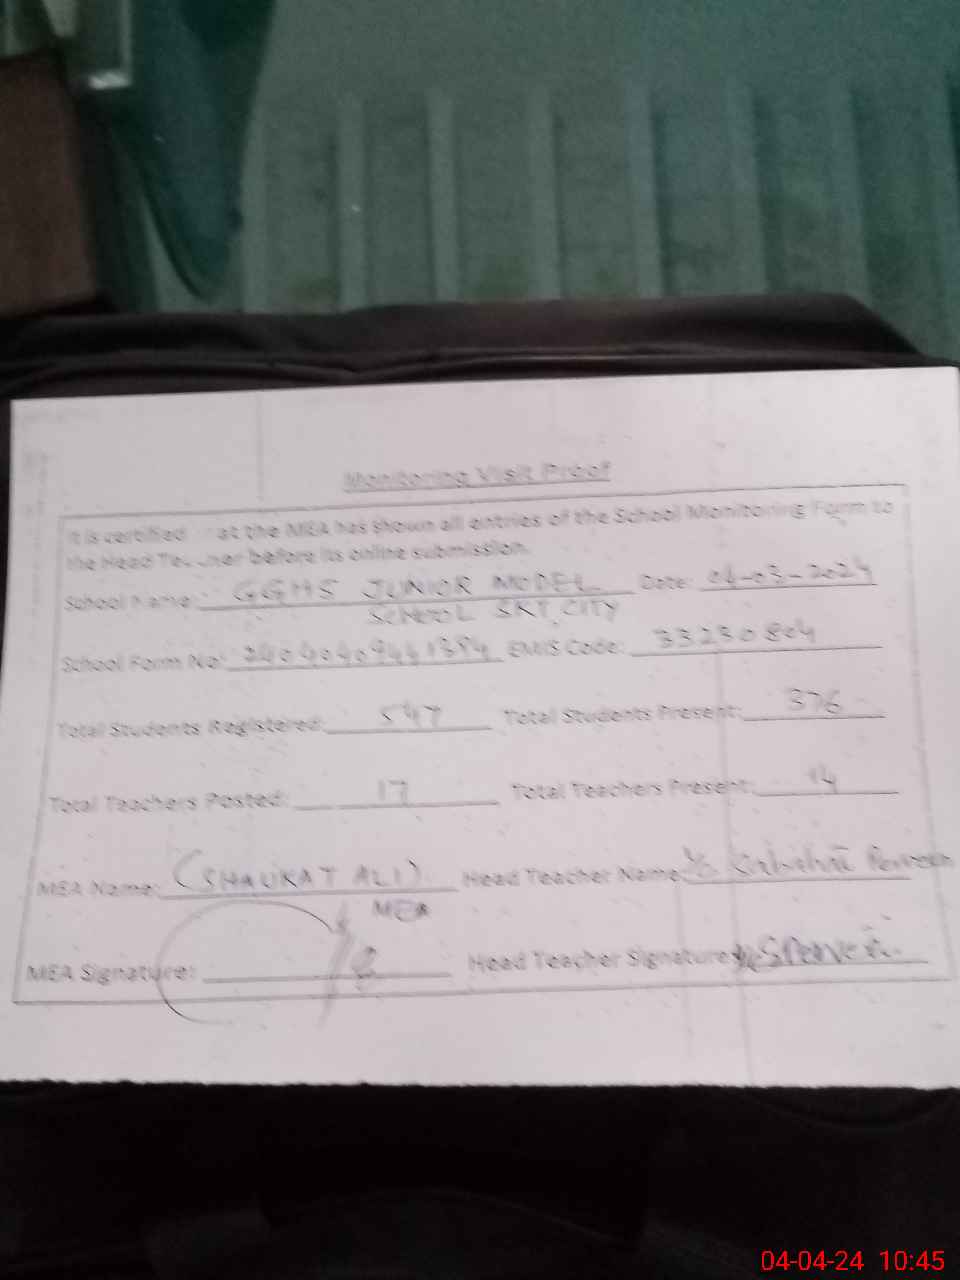 Monitoring Visit Proof
It is certified at the MEA has shown all entries of the School Monitoring Form to
the Head before its online submission.
School Name: GGHS JUNIOR MODEL Date: 04-03-2024
SCHOOL SKT CITY
School Form No: EMIS Code: 33230804
Total Students Registered: 547 Total Students Present: 376
Total Teachers Posted: 17 Total Teachers Present: 14
MEA Name: (SHAUKAT ALI) Head Teacher Name:
MEA
MEA Signature: Head Teacher Signature:
04-04-24 10:45